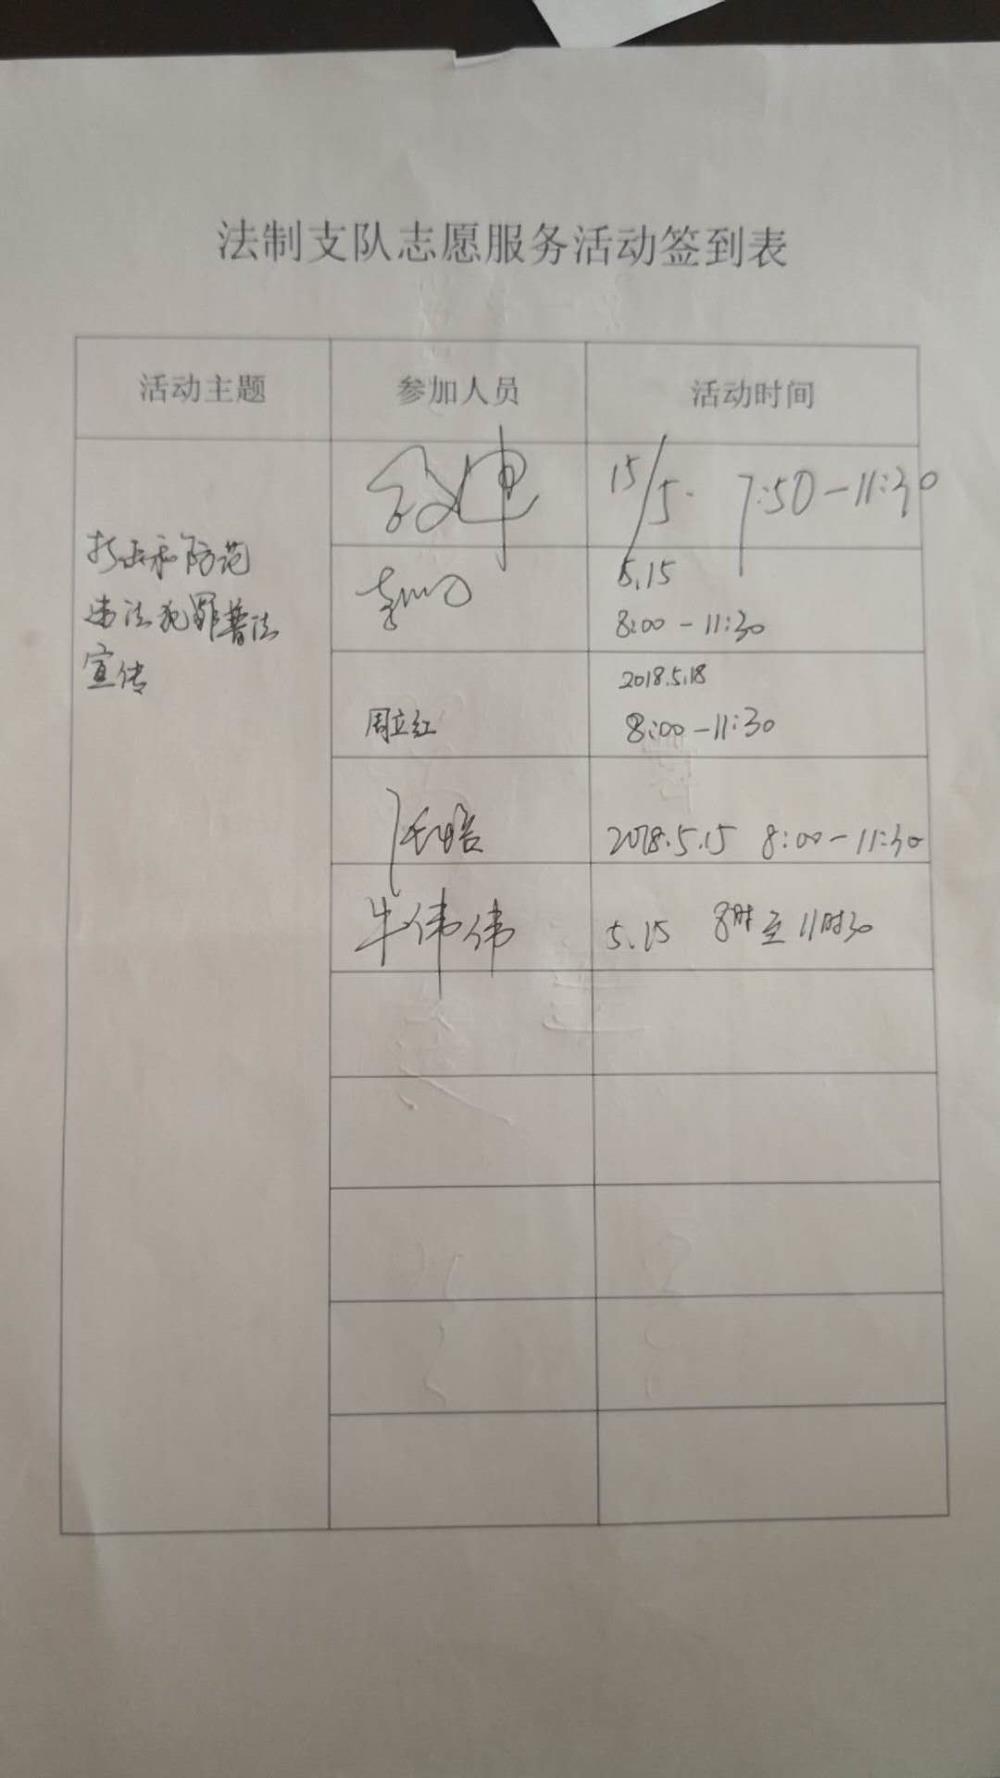 法制支队志愿服务活动签到表
活动主题 参加人员 活动时间
打击和防范
违法犯罪普法
宣传
15/5. 7:50-11:30
5.15
8:00-11:30
2018.5.18
周立红 8:00-11:30
2018.5.15 8:00-11:30
牛伟伟 5.15 8时至11时30